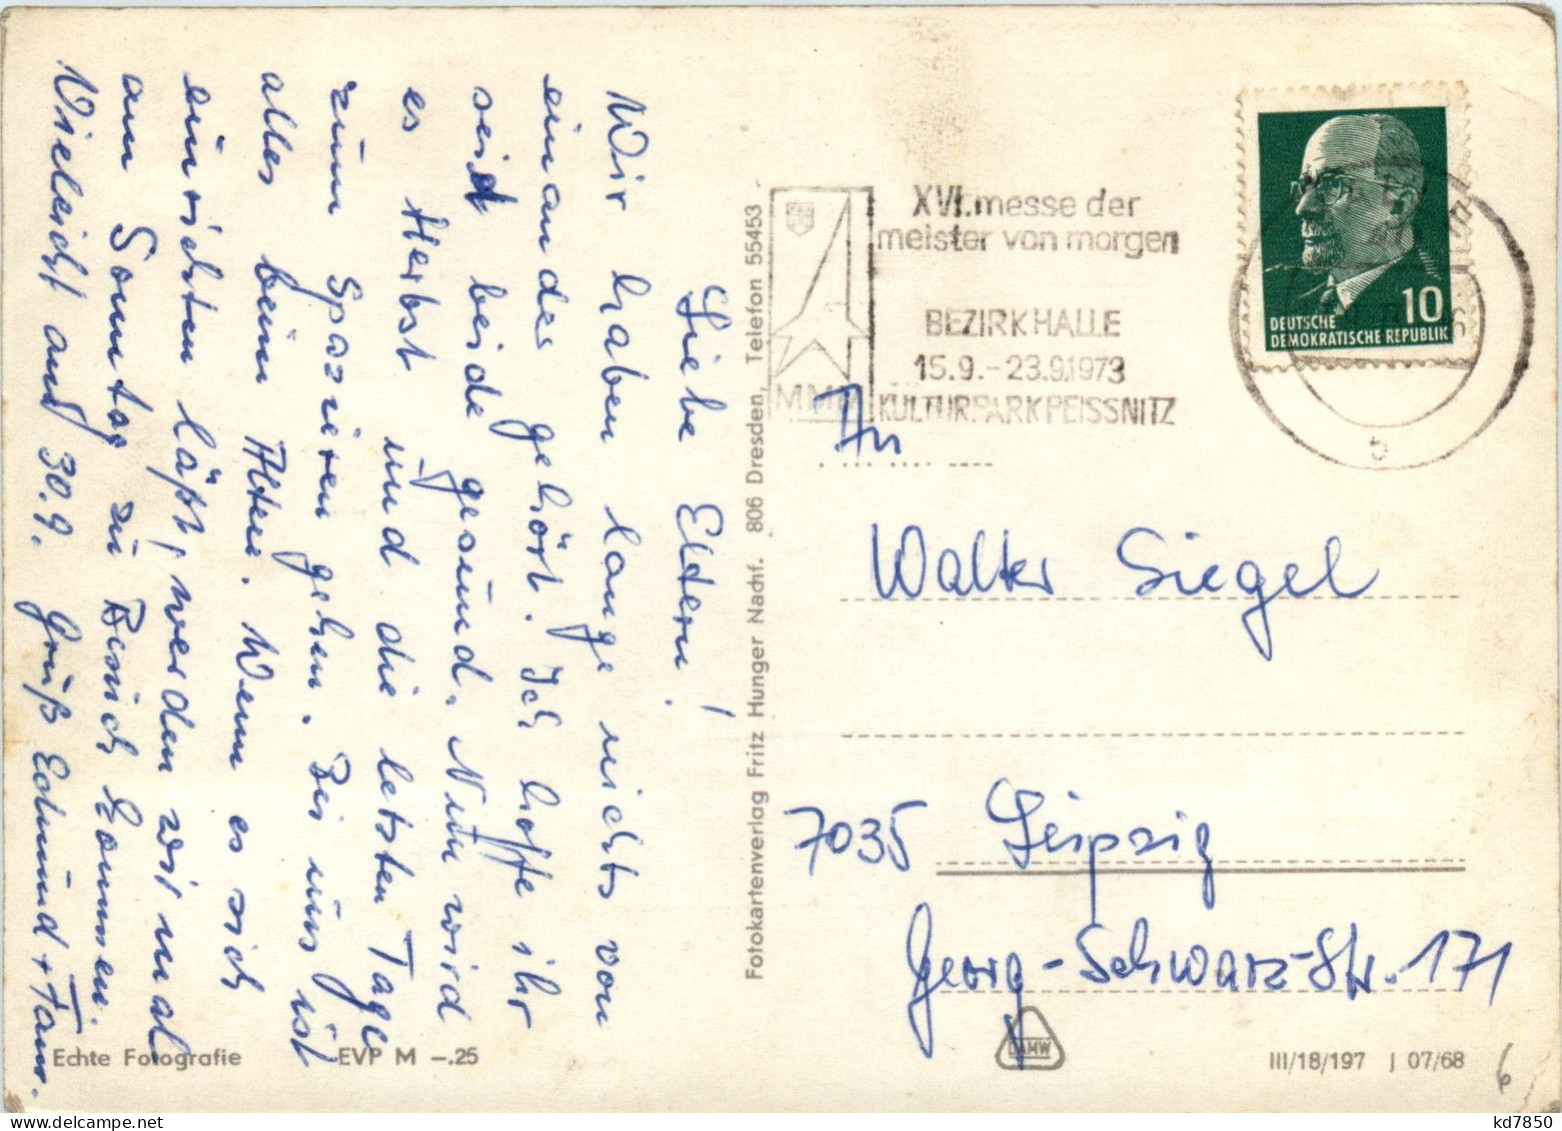 Liebe Eltern!
Wir haben lange nichts von
einander gehört. Ich hoffe ihr
seid beide gesund. Nun wird
es Herbst und die letzten Tage
zum Spazieren gehen. Bei uns ist
alles beim Alten. Wenn es sich
einrichten läßt, werden wir mal
am Sonntag zu Besuch kommen.
Vieleicht am 30.9. Gruß Edmund + Fam.
Echte Fotografie
EVP M –.25
Fotokartenverlag Fritz Hunger Nachf. 806 Dresden, Telefon 55453
XVI. messe der
meister von morgen
BEZIRK HALLE
15.9.-23.9.1973
KULTURPARK PEISSNITZ
MMM
10
DEUTSCHE
DEMOKRATISCHE REPUBLIK
An
Walter Siegel
7035 Leipzig
Georg-Schwarz-Str. 171
DAMW
III/18/197 J 07/68
6
kd7850